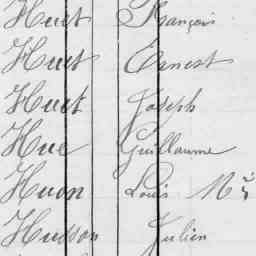 Huet François
Huet Ernest
Huet Joseph
Hue Guillaume
Huon Louis
Hudson Julien